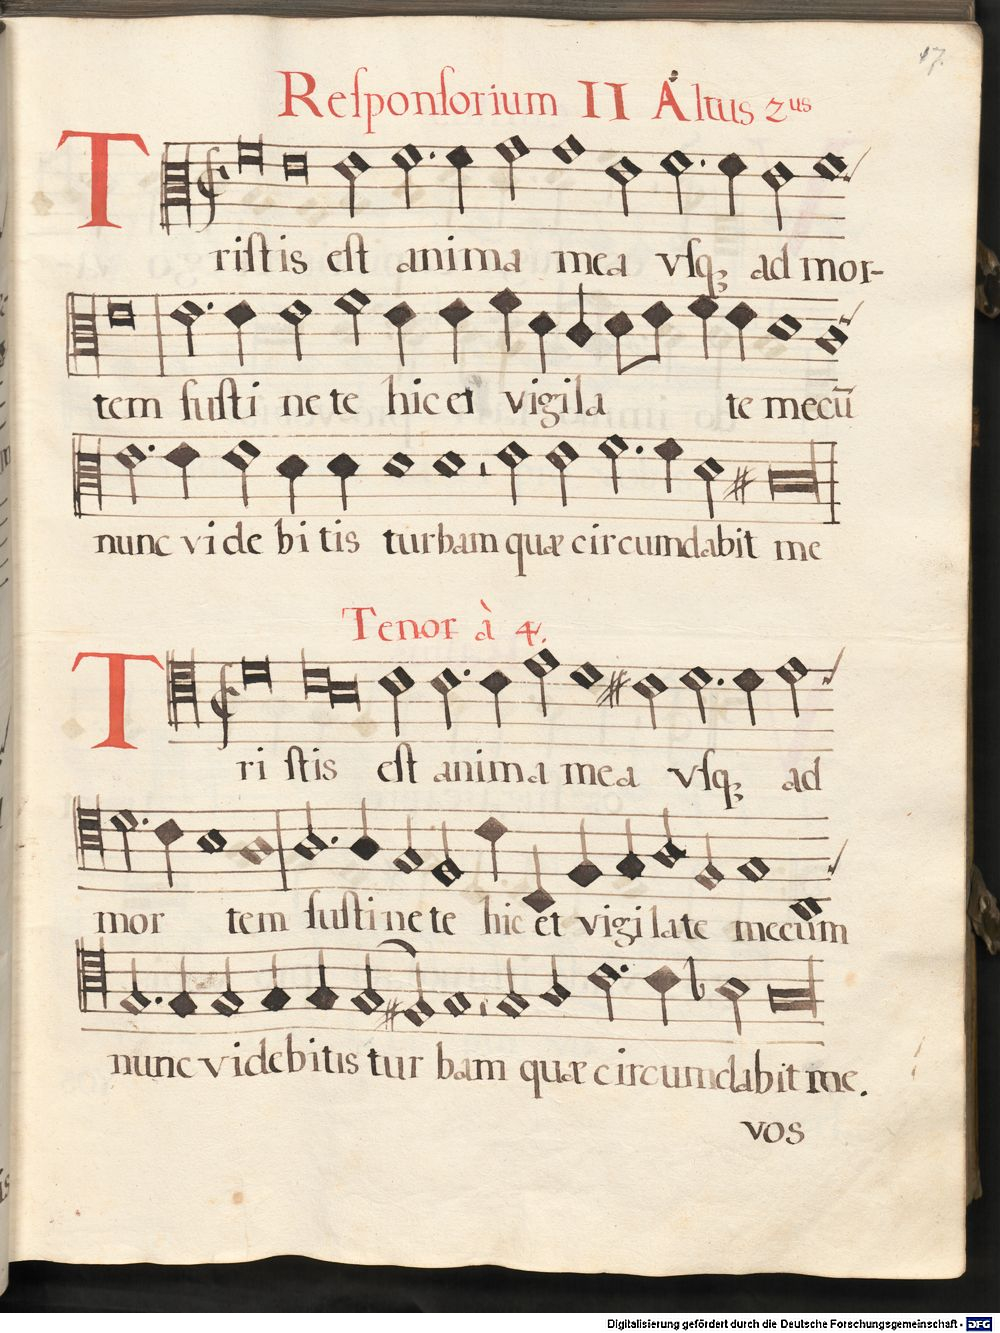 17.
Reſponſorium II Altus 2us
Triſtis eſt anima mea vſq̃ ad mor-
tem ſuſti ne te hic et vigila te mecũ
nunc vi de bi tis turbam quæ circumdabit me
Tenor à 4.
Tri ſtis eſt anima mea vſq̃ ad
mor tem ſuſtinete hic et vigilate mecum
nunc videbitis tur bam quæ circumdabit me.
vos
Digitalisierung gefördert durch die Deutsche Forschungsgemeinschaft - DFG